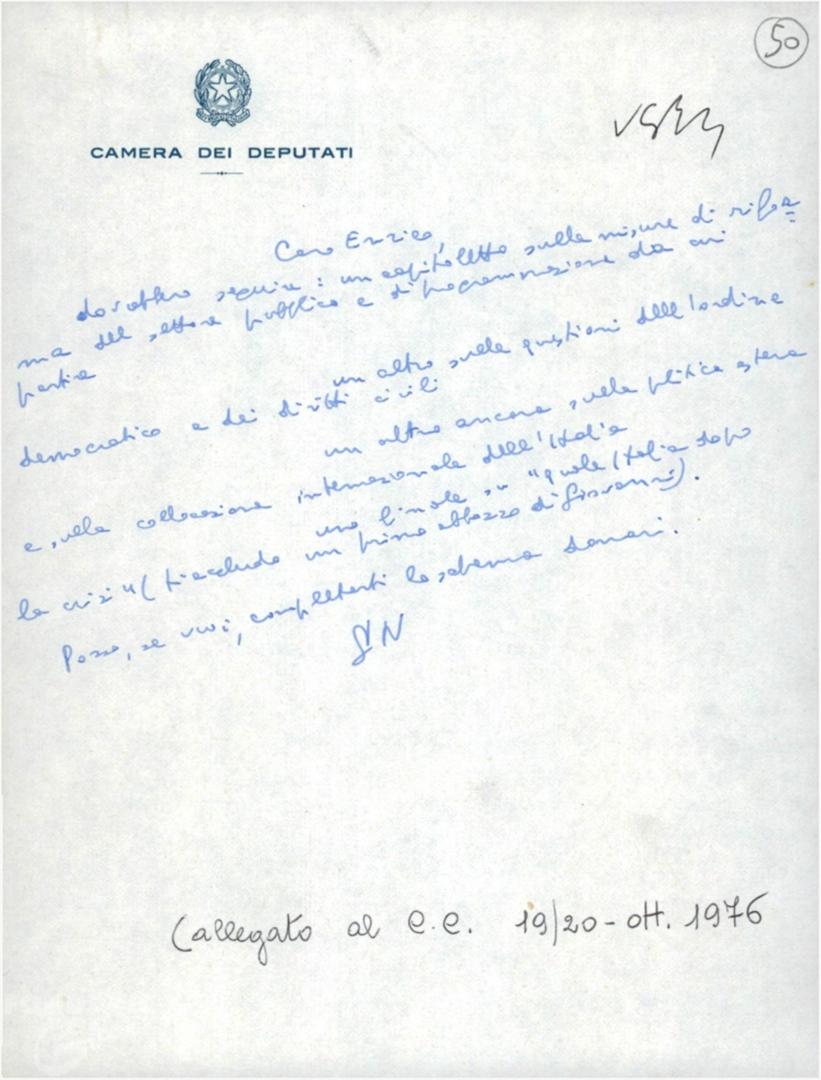 50
CAMERA DEI DEPUTATI
Caro Enrico,
dovrebbero seguire: un capitoletto sulle misure di rifor
ma del settore pubblico e di programmazione da cui
partire
un altro sulle questioni dell'ordine
democratico e dei diritti civili
un altro ancora sulla politica estera
e sulla collocazione internazionale dell'Italia
uno finale su "quale Italia dopo
la crisi" (ti accludo un primo abbozzo di Giovanni).
Posso, se vuoi, completarti lo schema domani.
GN
(allegato al C.C. 19/20-ott. 1976